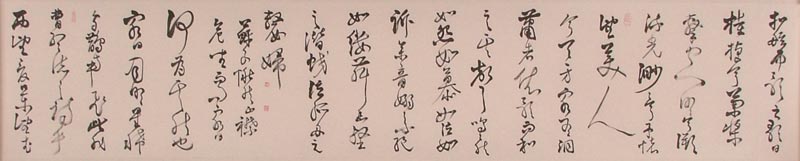 扣舷而歌之歌曰
桂棹兮蘭槳
擊空明兮泝
流光渺渺兮予懷
望美人
兮天一方客有吹洞
簫者倚歌而和
之其聲嗚嗚然
如怨如慕如泣如
訴餘音嫋嫋不絕
如縷舞幽壑
之潛蛟泣孤舟之
嫠婦
蘇子愀然正襟
危坐而問客曰
何為其然也
客曰月明星稀
烏鵲南飛此非
曹孟德之詩乎
西望夏口東望武